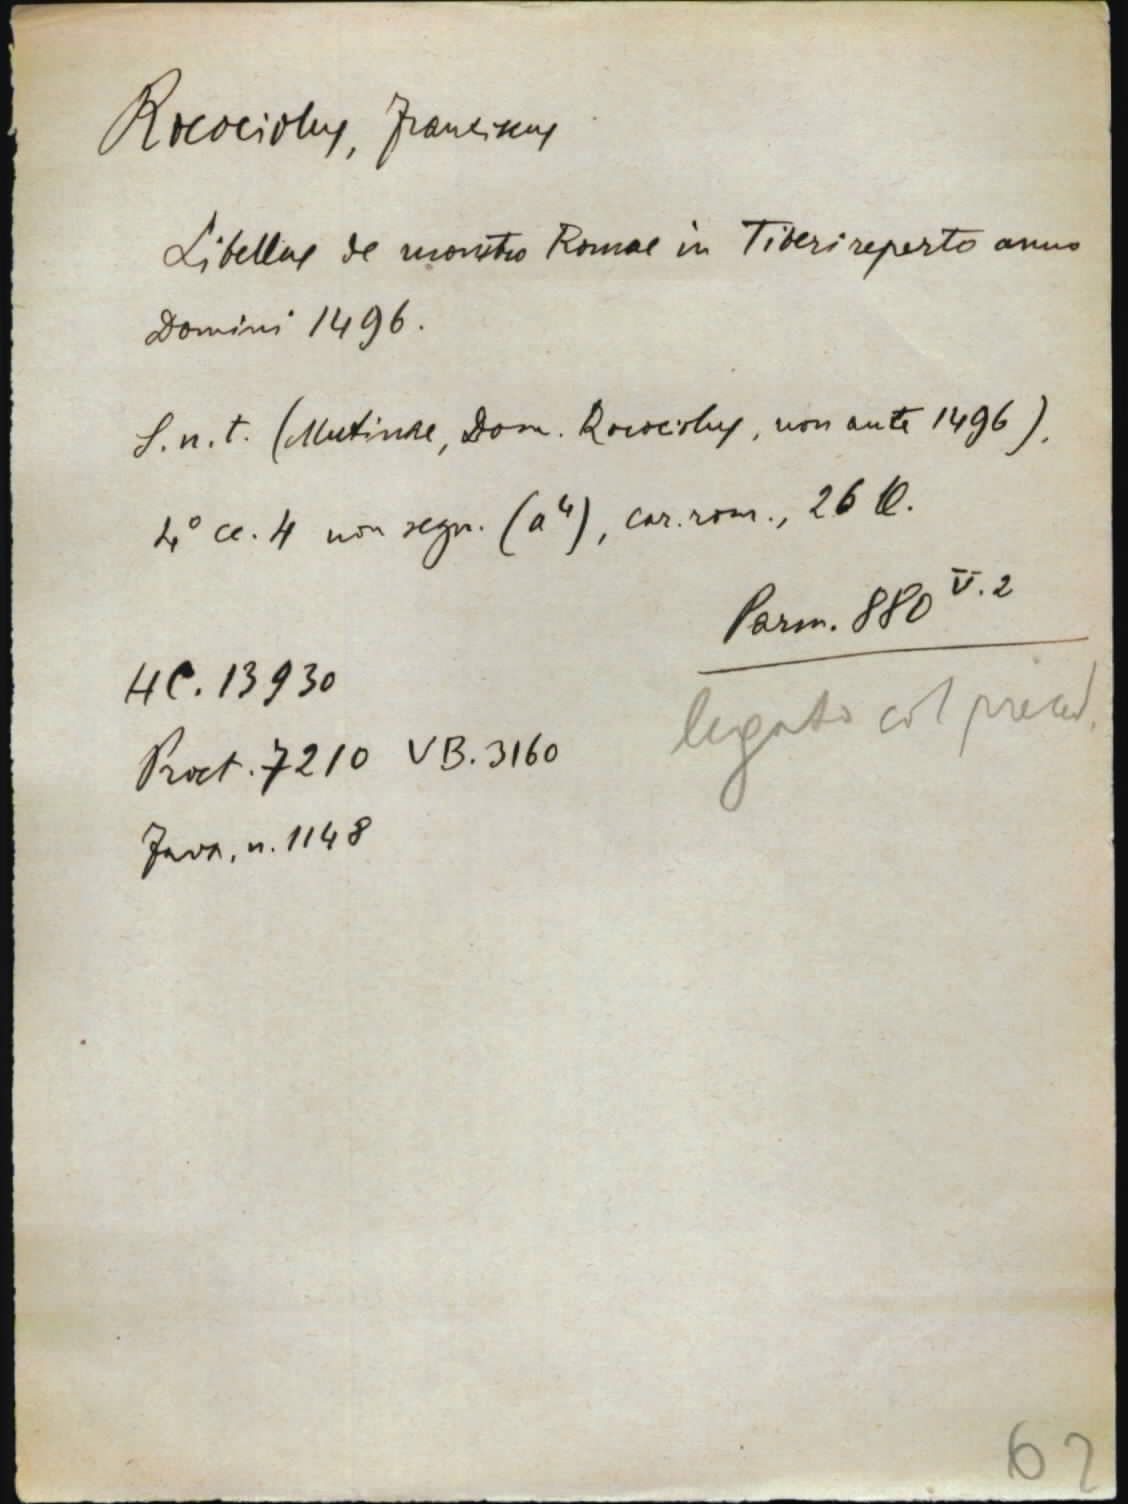 Rocociolus, Franciscus
Libellus de monstro Romae in Tiberi reperto anno
Domini 1496.
S.n.t. (Mutinae, Dom. Rocociolus, non ante 1496).
4° cc. 4 non segn. (a⁴), car. rom., 26 ll.
Parm. 880 V. 2
legato col preced.
HC. 13930
Proct. 7210 VB. 3160
Fava, n. 1148
62